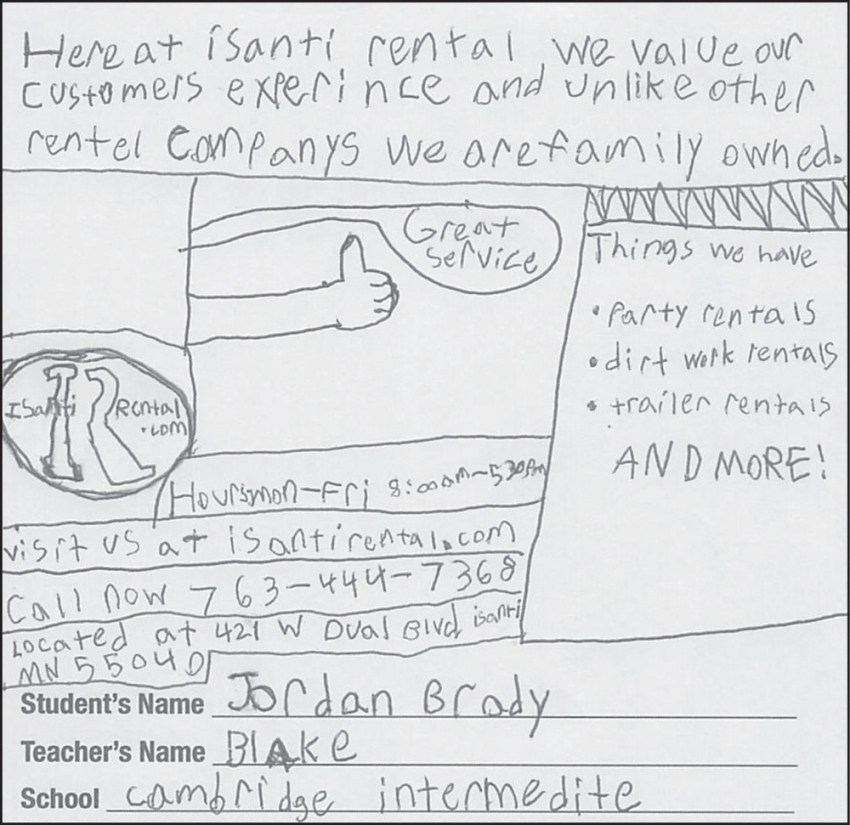 Here at isanti rental, we value our
customers experince and unlike other
rentel companys we are family owned.
Great
service
Things we have
• Party rentals
• dirt work rentals
• trailer rentals
AND MORE!
ISanti IR Rental
.com
Hours mon-Fri 8:00 AM-5:30 PM
visit us at isantirental.com
Call now 763-444-7368
Located at 421 W Dual Blvd isanti
MN 55040
Student's Name Jordan Brady
Teacher's Name Blake
School cambridge intermedite